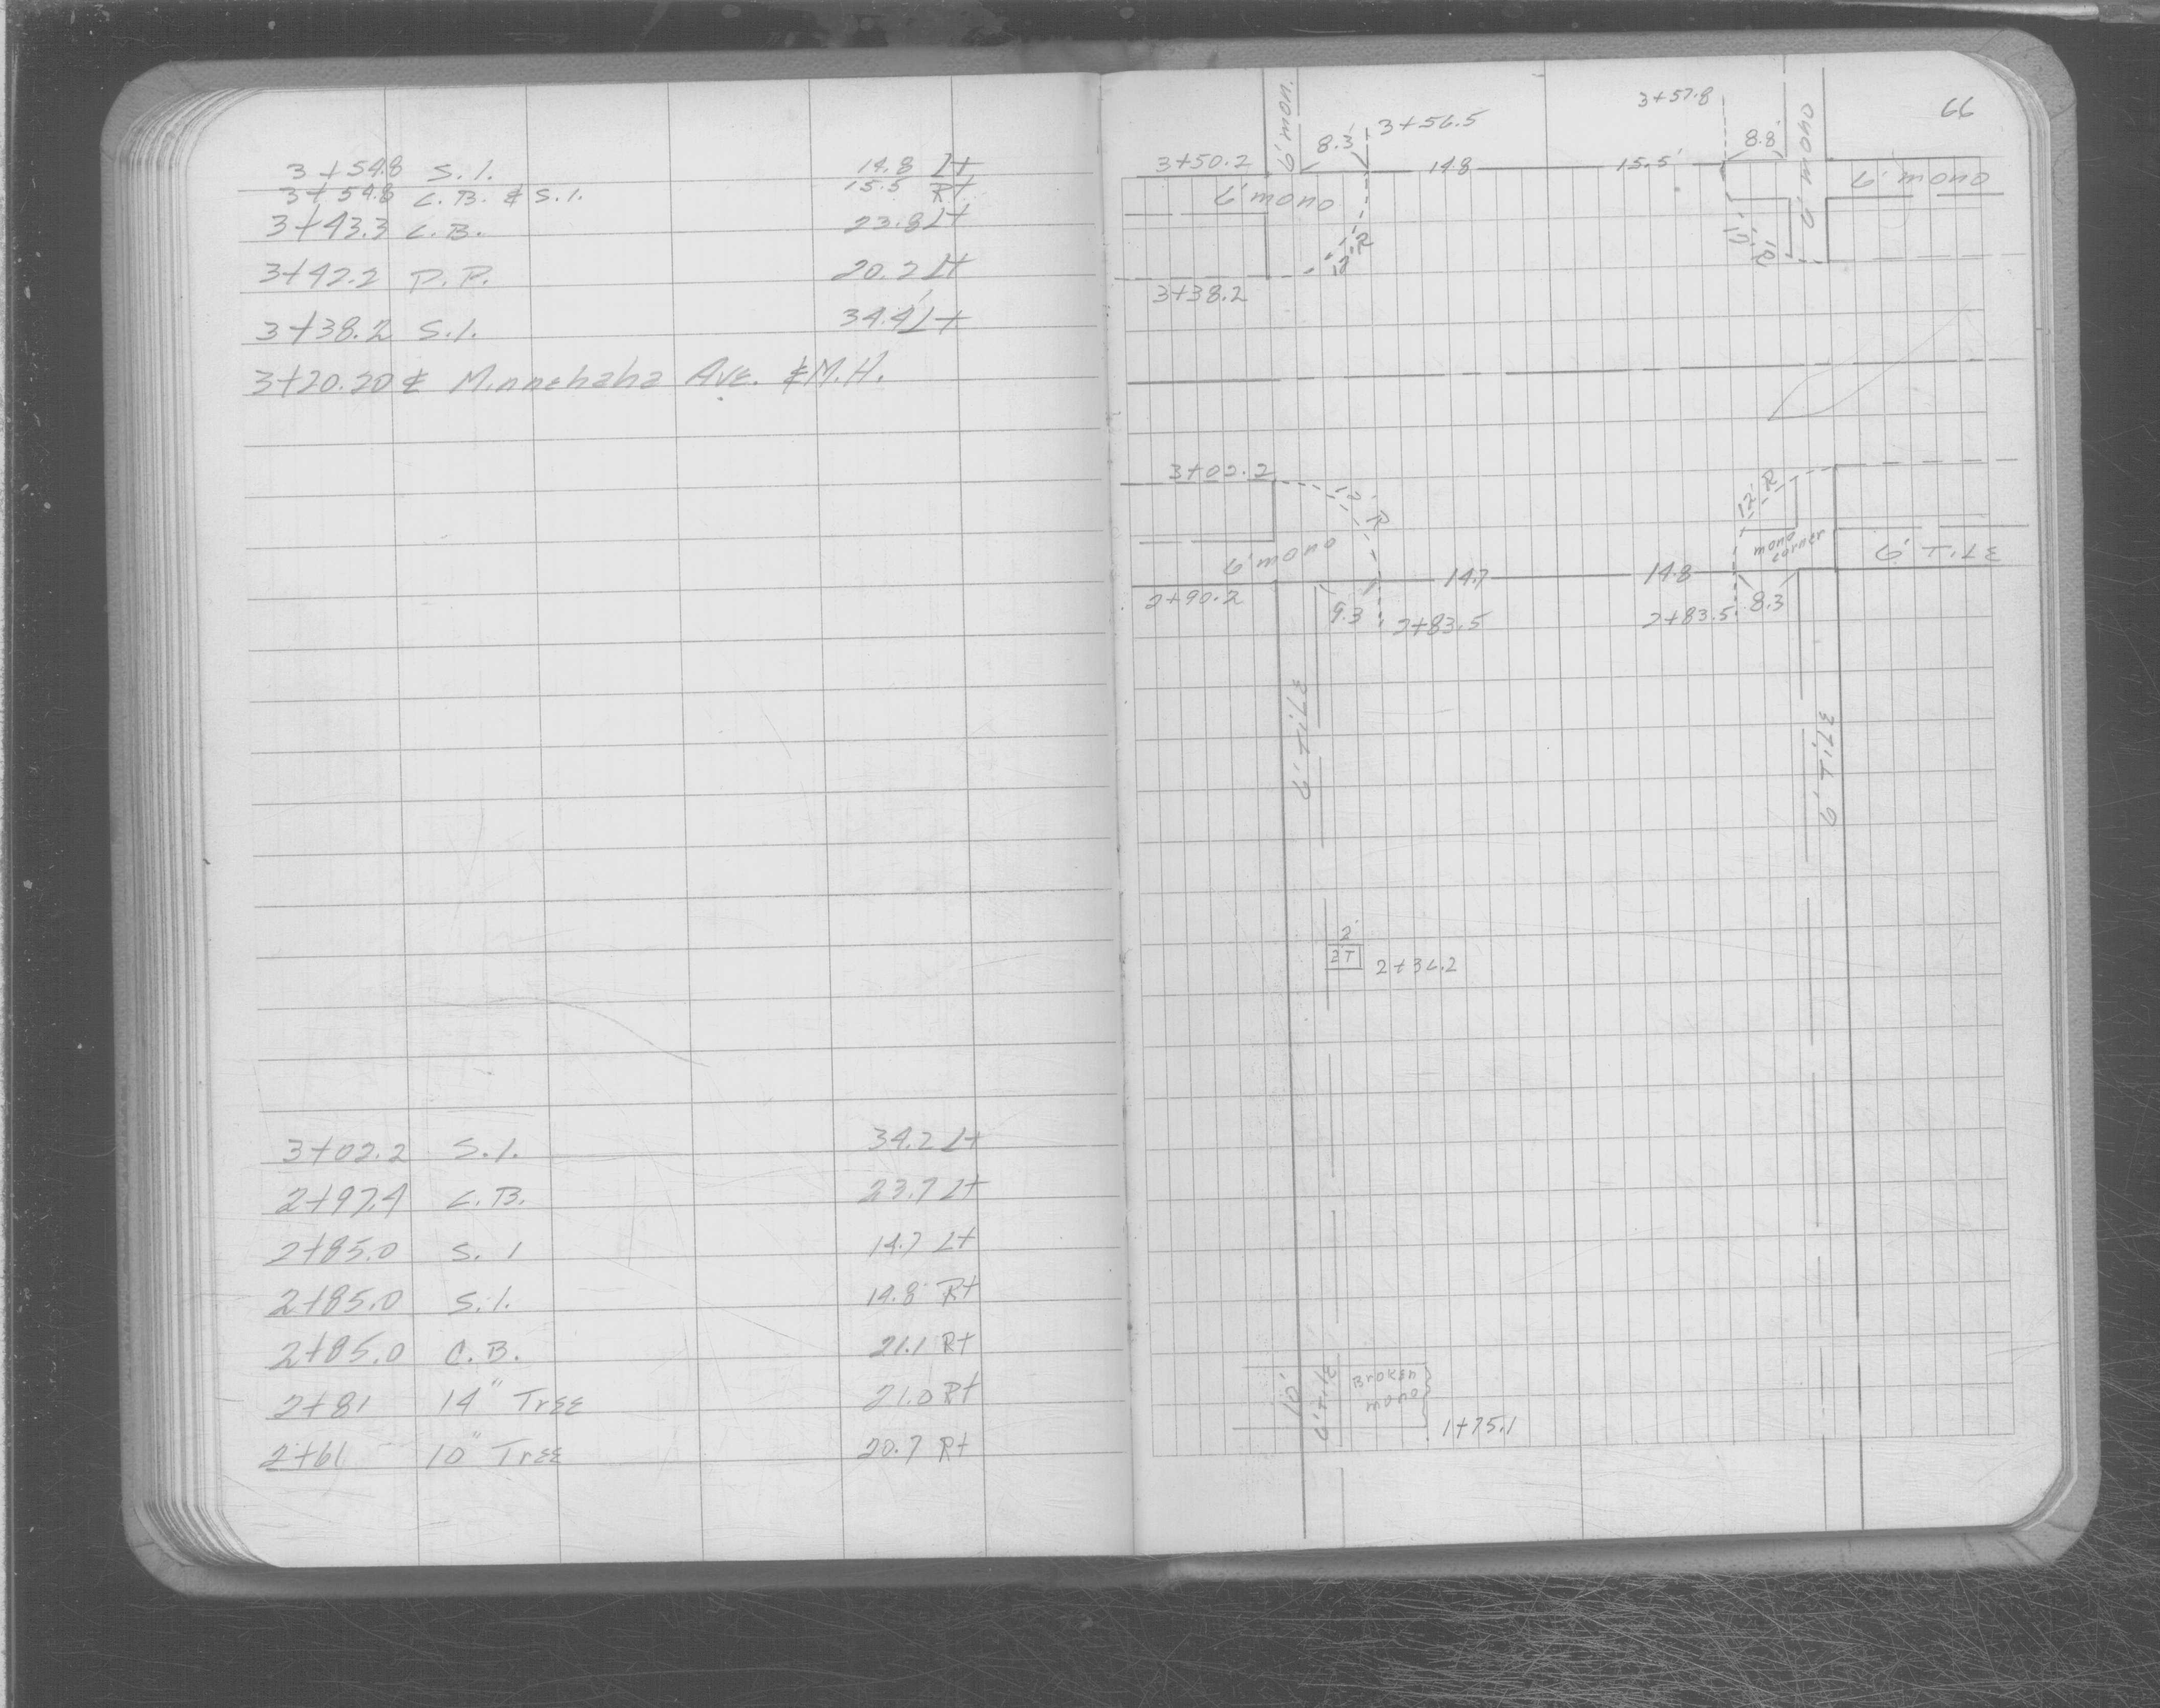 3+54.8 S.I. 14.8 Lt
3+54.8 C.B. & S.I. 15.5 Rt
3+43.3 C.B. 23.8 Lt
3+42.2 P.P. 20.2 Lt
3+38.2 S.I. 34.4' Lt
3+20.20 ₵ Minnehaha Ave. ₵ M.H.
3+02.2 S.I. 34.2 Lt
2+97.4 C.B. 23.7 Lt
2+85.0 S.I 14.7 Lt
2+85.0 S.I. 14.8 Rt
2+85.0 C.B. 21.1 Rt
2+81 14" Tree 21.0 Rt
2+61 10" Tree 20.7 Rt
66
6' mon.
3+57.8
6' mono
3+50.2
8.3'
3+56.5
8.8'
14.8
15.5'
6' mono
6' mono
12' R
3+38.2
3+02.2
12' R
12' R
6' mono
mono
corner
6' TILE
2+90.2
14.7
14.8
9.3
2+83.5
2+83.5
8.3
6' TILE
6' TILE
2'
2T
2+36.2
10'
6' Tile
Broken
mono
1+75.1